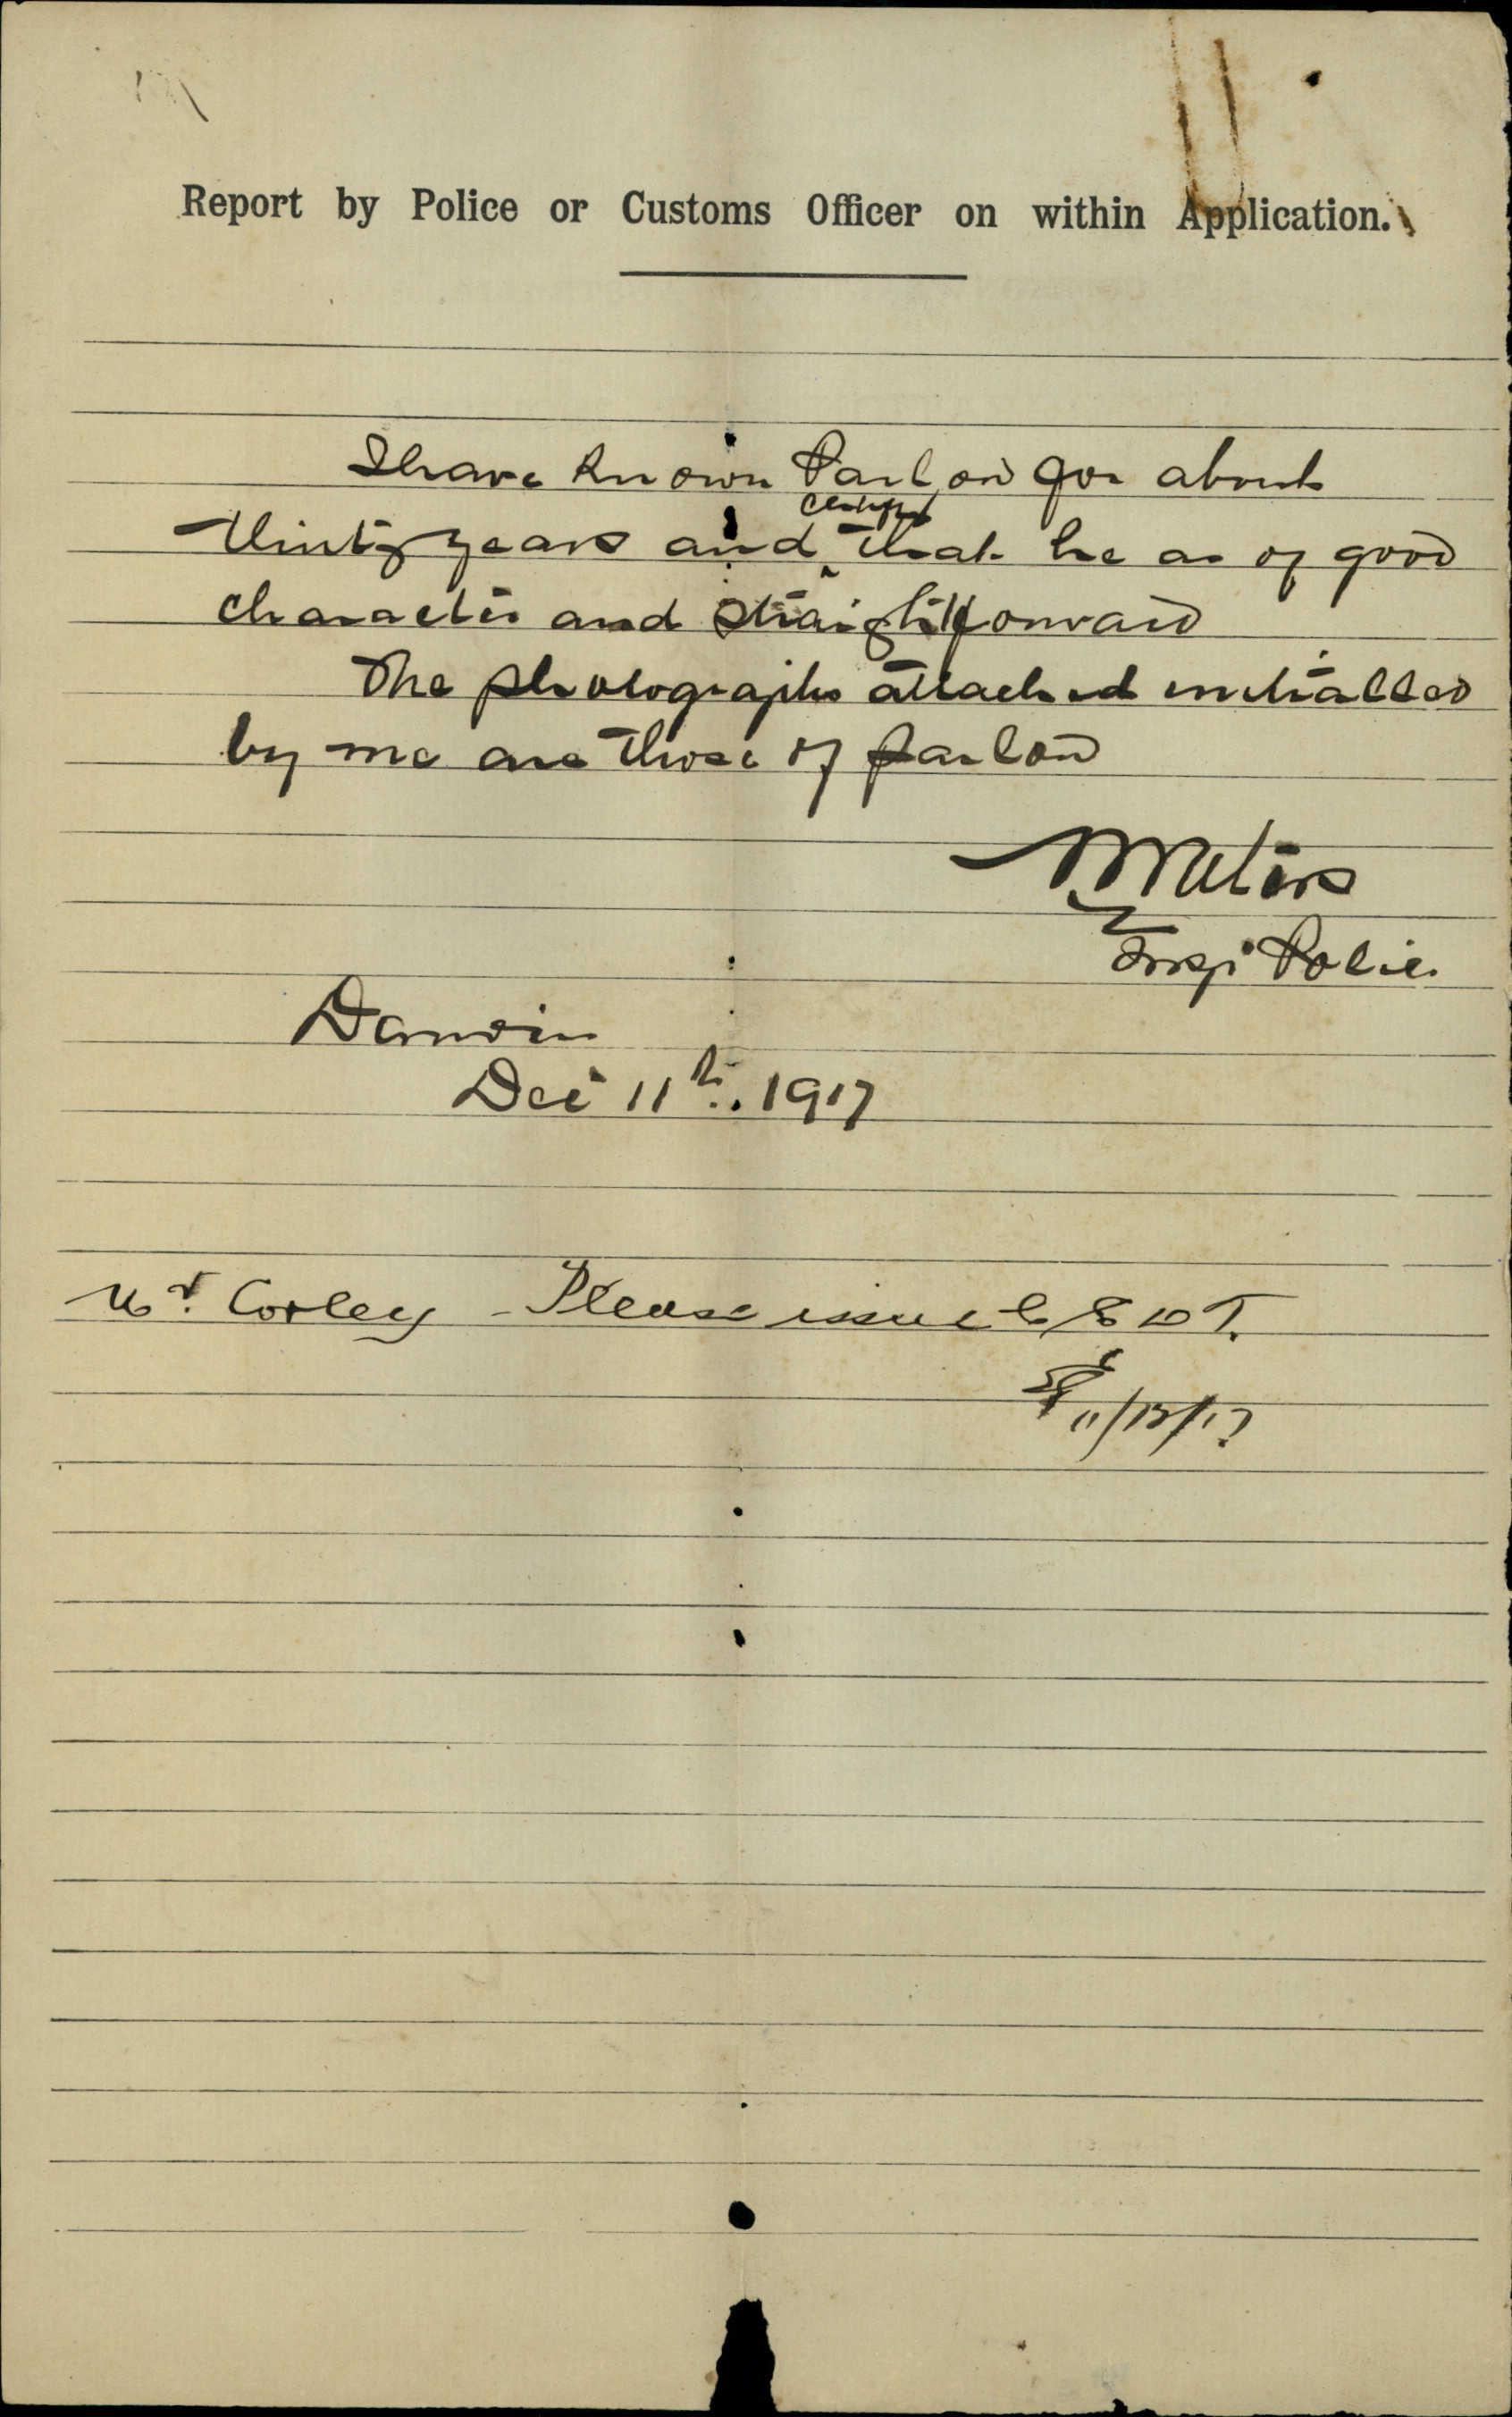 Report by Police or Customs Officer on within Application.
I have known Parlow for about
certify
thirty years and that he as of good
character and straightforward
The photographs attached initialled
by me are those of Parlow
N Waters
Insp Police
Darwin
Dec 11th. 1917
Mr. Corley - Please issue C E D T.
11/12/17